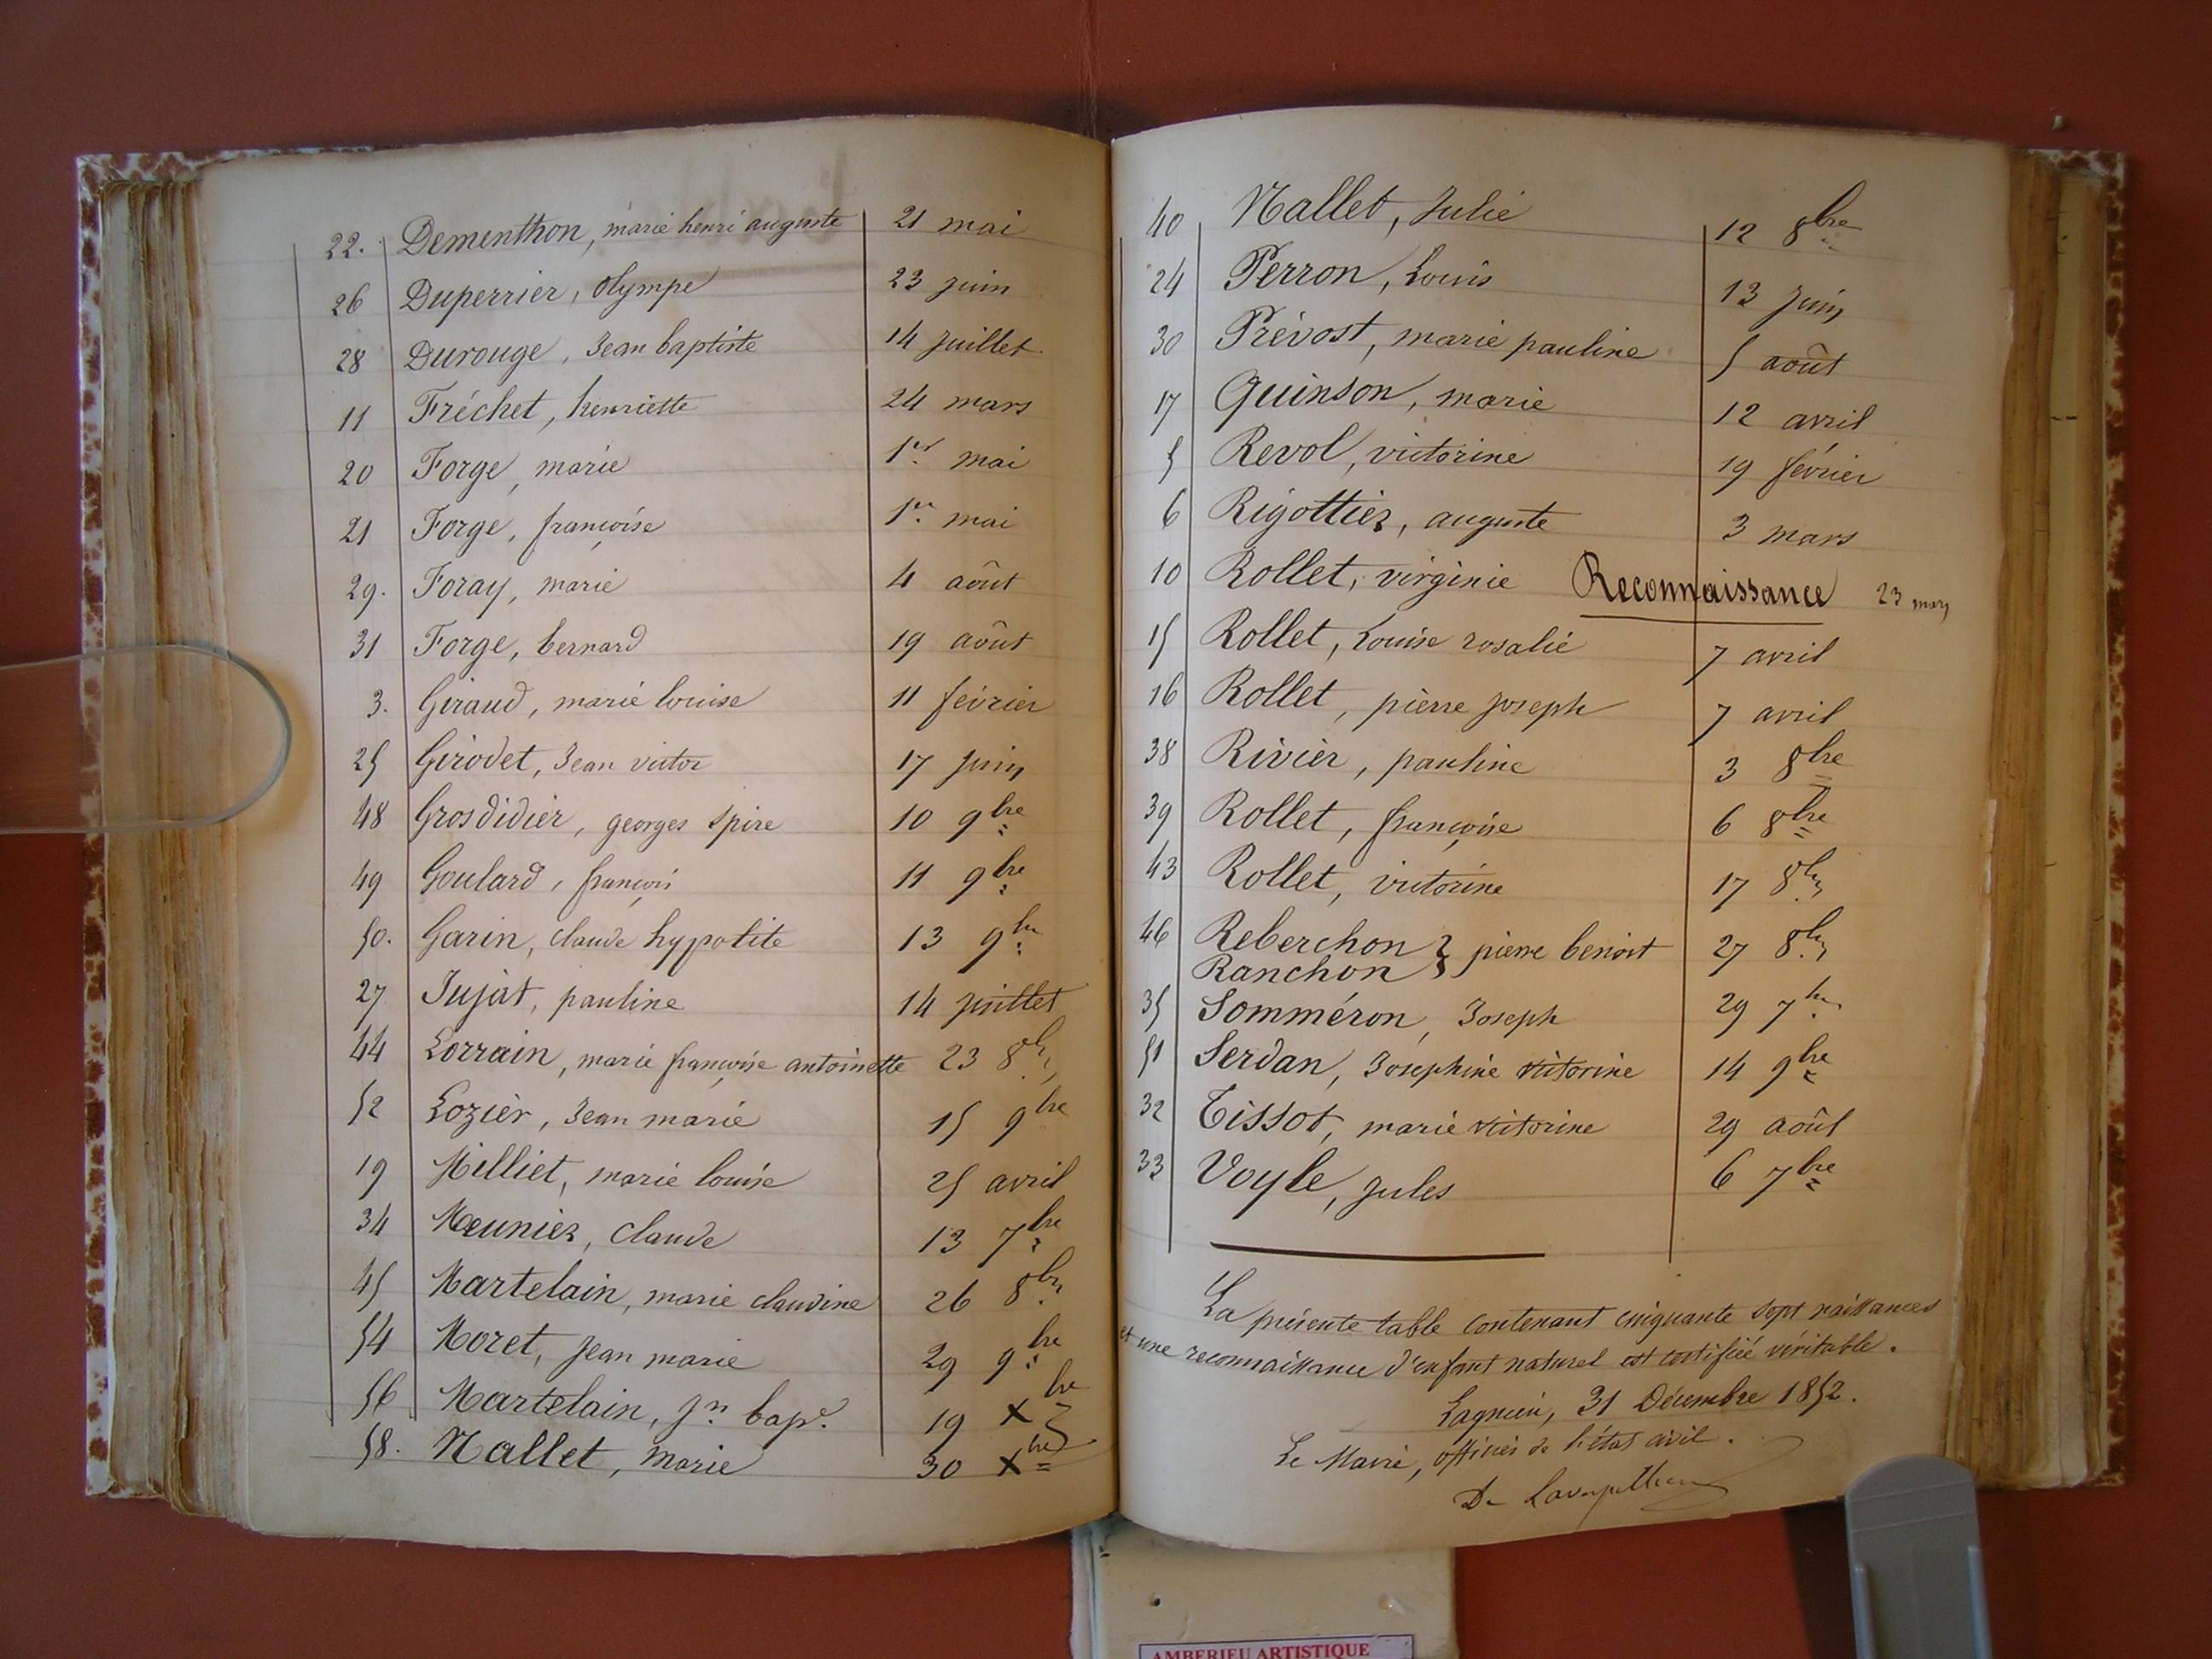 22. Dementhon, marie henri auguste 21 mai
26 Duperrier, Olympe 23 juin
28 Durouge, Jean baptiste 14 Juillet
11 Fréchet, henriette 24 mars
20 Forge, marie 1er mai
21 Forge, françoise 1er mai
29. Foray, marie 4 août
31 Forge, bernard 19 août
3. Giraud, marie louise 11 février
25 Girodet, Jean victor 17 juin
48 Grosdidier, georges spire 10 9bre
49 Goulard, françois 11 9bre
50. Garin, claude hypolite 13 9bre
27 Jujat, pauline 14 juillet
44 Lorrain, marie françoise antoinette 23 8bre
52 Lozier, Jean marie 15 9bre
19 Milliet, marie louise 25 avril
34 Meunier, Claude 13 7bre
45 Martelain, marie claudine 26 8bre
54 Moret, jean marie 29 9bre
56 Martelain, jn bapte. 19 Xbre
58. Nallet, marie 30 Xbre
40 Nallet, Julie 12 8bre
24 Perron, Louis 13 Juin
30 Prévost, marie pauline 5 août
17 Quinson, marie 12 avril
5 Revol, victorine 19 février
6 Rigottier, auguste 3 mars
10 Rollet, virginie Reconnaissance 23 mars
15 Rollet, Louise rosalie 7 avril
16 Rollet, pierre joseph 7 avril
38 Rivier, pauline 3 8bre
39 Rollet, françoise 6 8bre
43 Rollet, victorine 17 8bre
46 Reberchon } pierre benoit 27 8bre
Ranchon
35 Somméron, Joseph 29 7bre
51 Serdan, Josephine victorine 14 9bre
32 Tissot, marie victorine 29 août
33 Voyle, Jules 6 7bre
La présente table contenant cinquante sept naissances
et une reconnaissance d'enfant naturel est certifiée véritable.
Lagnieu, 31 Décembre 1852.
Le Maire, officier de l'état civil.
De
AMBERIEU ARTISTIQUE